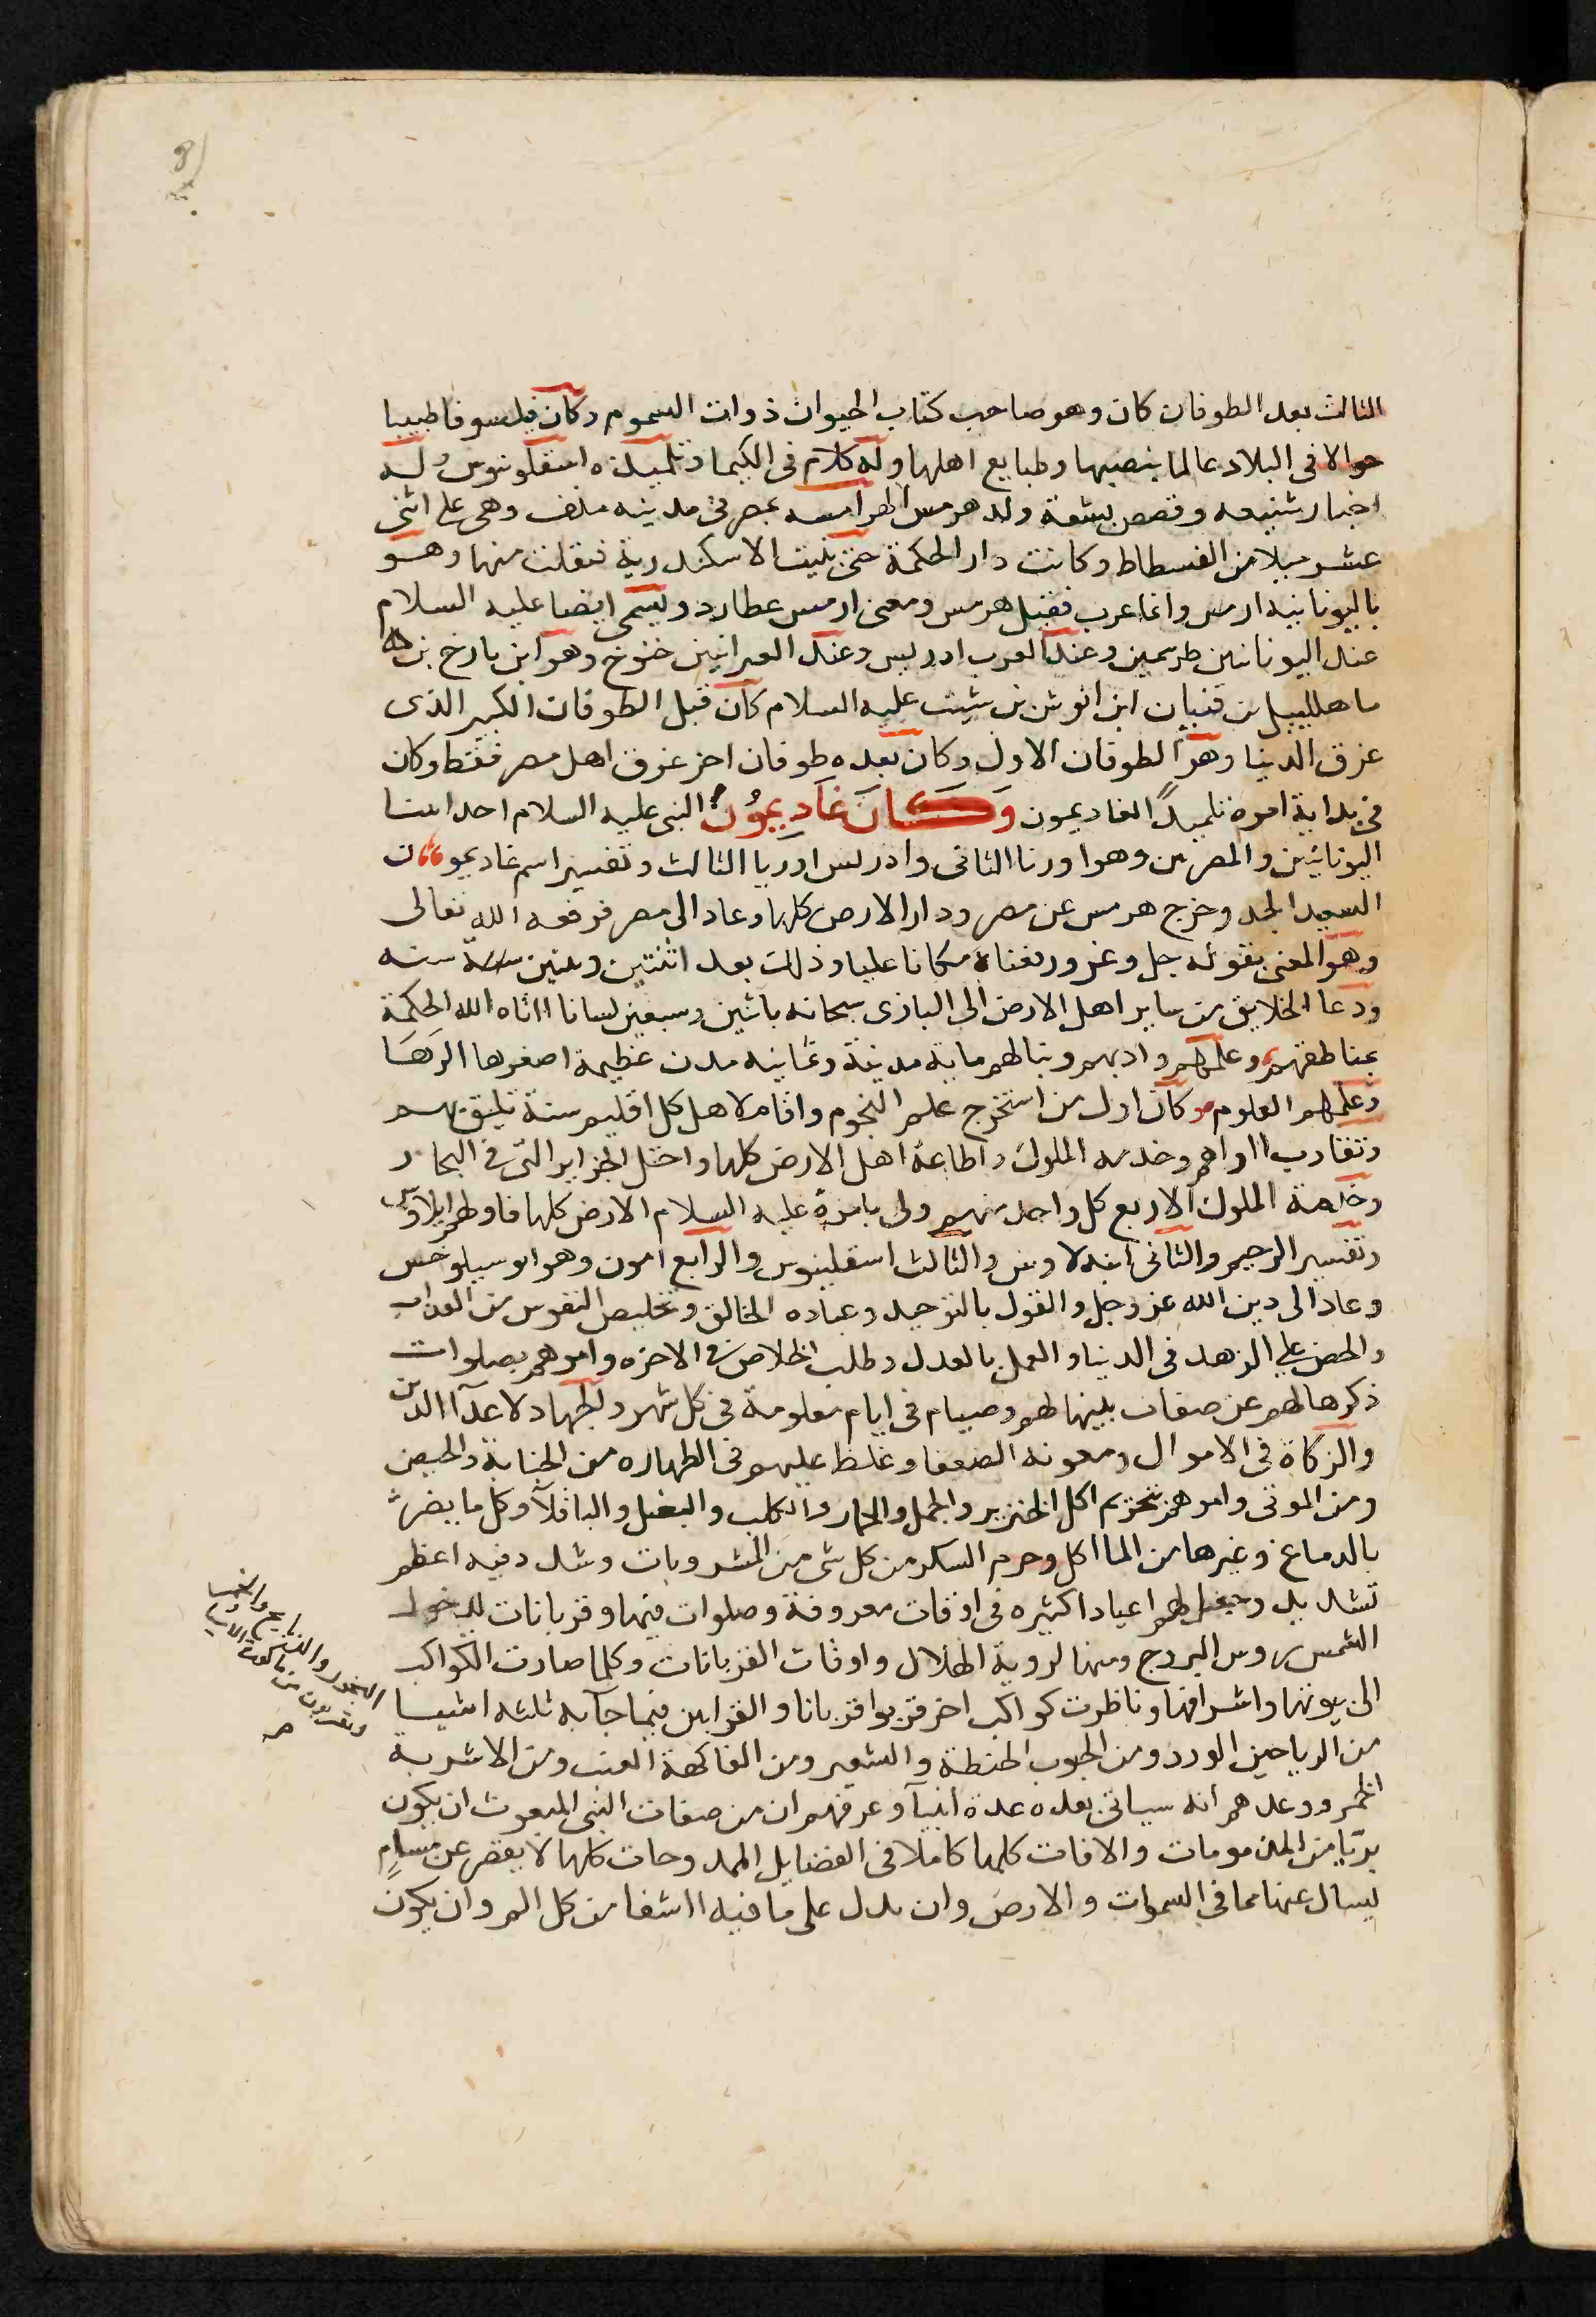 الثالث بعد الطوفان كان وهو صاحب كتاب الحيوان ذوات السموم وكان فيلسوفا طبيبا
جوالا في البلاد عالما بنصبها وطبايع اهلها وله كلام في الكيما وتلميذه اسقلوبيوس وله
اخبار شنيعه وقصص بشعة ولد هرمس الهرامسه بمصر في مدينه منف وهي على اثنى
عشر ميلا من الفسطاط وكانت دار الحكمة حتى بنيت الاسكندرية فنقلت منها وهو
باليونانيه ارمس وانما عرب فقيل هرمس ومعنى ارمس عطارد ويسمى ايضا عليه السلام
عند اليونانيين طرسمين وعند العرب ادريس وعند العبرانيين خنوخ وهو ابن يارخ بن
ماهلاييل بن قنيان ابن انوش بن شيث عليه السلام كان قبل الطوفان الكبير الذى
غرق الدنيا وهو الطوفان الاول وكان بعده طوفان اخر غرق اهل مصر فقط وكان
في بداية امره تلميذاً لغاديمون وَكَانَ غَاديمُون النبي عليه السلام احد انبيا
اليونانيين والمصريين وهو اورنا الثاني وادريس اوريا الثالث وتفسير اسم غاديمون
السعيد الجد وخرج هرمس عن مصر ودار الارض كلها وعاد الى مصر فرفعه الله تعالى
وهو المعنى بقوله جل وعز ورفعناه مكانا عليا وذلك بعد اثنتين وثمنين سنة
ودعا الخلايق من ساير اهل الارض الى البارى سبحانه باثنين وسبعين لسانا اتاه الله الحكمة
بمناطقهم وعلمهم وادبهم وبنا لهم ماية مدينة وثمانيه مدن عظيمة اصغرها الرَهَا
وعلمهم العلوم وكان اول من استخرج علم النجوم واقام لاهل كل اقليم سنة تليق بهم
وتقارب اراهم وخدمه الملوك واطاعة اهل الارض كلها واهل الجزاير التي في البحار
وخدمة الملوك الاربع كل واحد منهم ولى بامرة عليه السلام الارض كلها فاولهم ايلاوس
وتفسير الرحيم والثاني ابنه لاوس والثالث اسقلبيوس والرابع امون وهو ابسيلوخس
وعاد الى دين الله عز وجل والقول بالتوحيد وعباده الخالق وتخليص النفوس من العذاب
والحض على الزهد في الدنيا والعمل بالعدل وطلب الخلاص في الاخره وامرهم بصلوات
ذكرها لهم عن صفات بينها لهم وصيام في ايام معلومة في كل شهر والجهاد لاعدآ الدين
والزكاة في الاموال ومعونه الضعفا وغلظ عليهم في الطهاره من الجنابة والحيض
ومن الموتى وامرهم بتحريم اكل الخنزير والجمل والحمار والكلب والبغل والباقلآ وكل ما يضر
بالدماغ وغيرها من الماكل وحرم السكر من كل شى من المشروبات وشدد فيه اعظم
تشديد وجعل لهم اعيادا كثيره في اوقات معروفة وصلوات فيها وقربانات لدخول
الشمس روس البروج ومنها لروية الهلال واوقات القربانات وكلما صارت الكواكب
الى بيوتها واشرافها وناظرت كواكب اخر قربوا قربانا والقرابين فيما جآ به ثلثه اشيا
من الرياحين الورد ومن الحبوب الحنطة والشعير ومن الفاكهة العنب ومن الاشربة
الخمر ووعدهم انه سياتي بعده عدة انبيآ وعرفهم ان من صفات النبي المبعوث ان يكون
بريّا من المذمومات والافات كلها كاملا في الفضايل الممدوحات كلها لا يقصر عن مسايل
يسال عنها مما في السموات والارض وان يدل على ما فيه الشفا من كل الم وان يكون
البخور والذبايح
ويقربون من باكورة